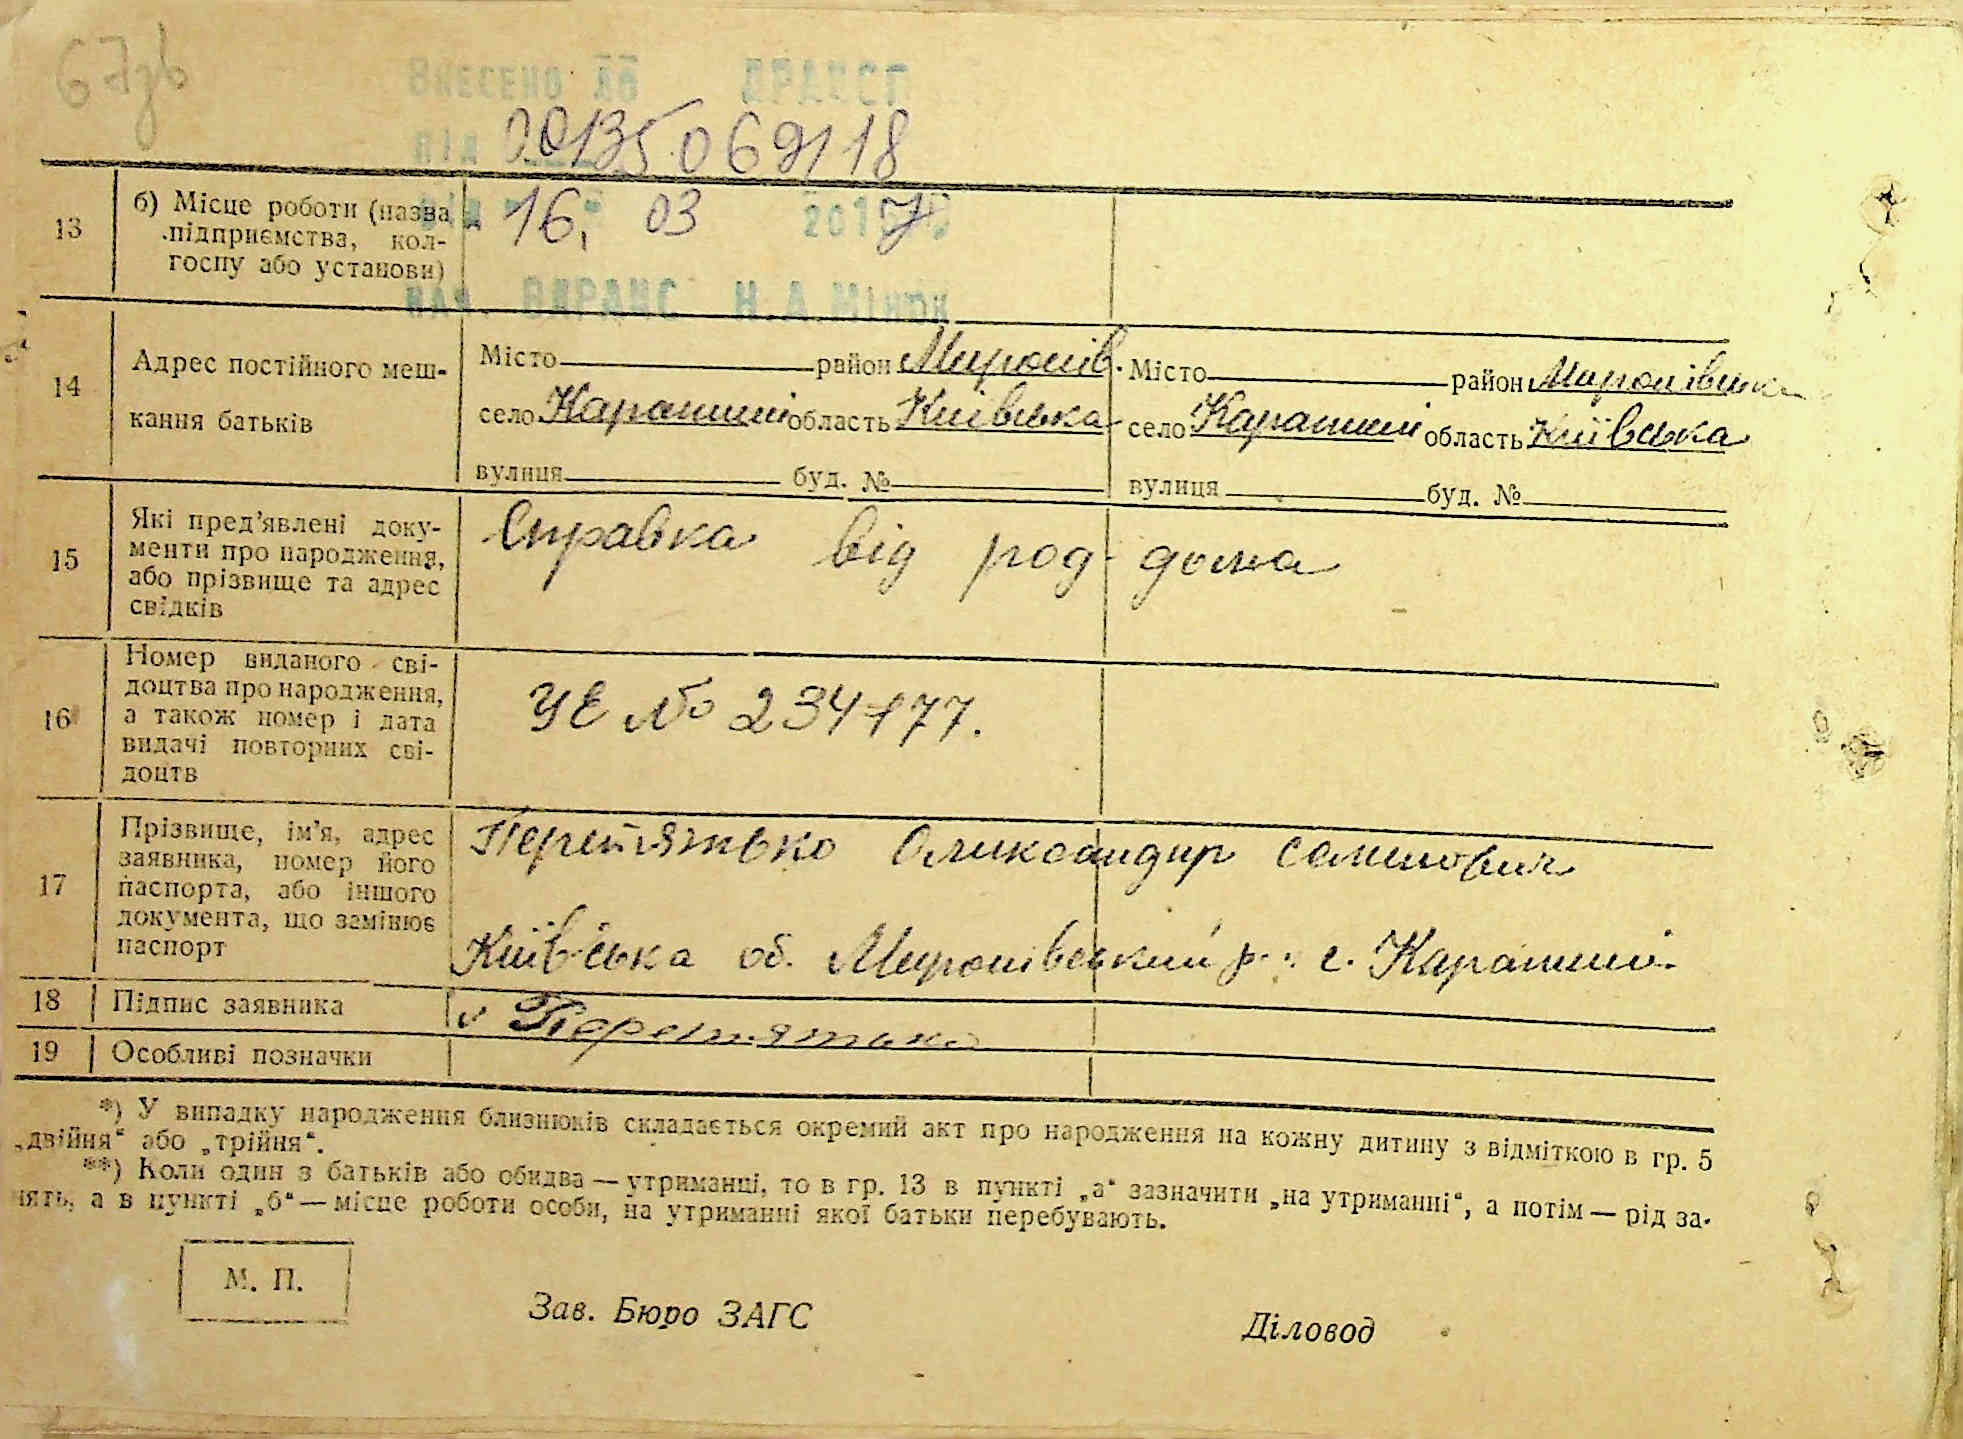 67зв
Внесено до ДРАЦСГ
під 00135069118
від 16. 03 2017
нач. ВДРАЦС Н.А.Мінюк
13 б) Місце роботи (назва
підприємства, кол-
госпу або установи)
14 Адрес постійного меш-
кання батьків
Місто район Миронів. Місто район Миронівськ
село Карапиші область Київська село Карапиші область Київська
вулиця буд. № вулиця буд. №
15 Які пред’явлені доку-
менти про народження,
або прізвище та адрес
свідків
Справка від род-дома
16 Номер виданого сві-
доцтва про народження,
а також номер і дата
видачі повторних сві-
доцтв
УЕ № 234177.
17 Прізвище, ім’я, адрес
заявника, номер його
паспорта, або іншого
документа, що замінює
паспорт
Перетятько Олександр Семенович
Київська об. Миронівський р. с. Карапиші.
18 Підпис заявника Перетятько
19 Особливі позначки
*) У випадку народження близнюків складається окремий акт про народження на кожну дитину з відміткою в гр. 5
„двійня“ або „трійня“.
**) Коли один з батьків або обидва — утриманці, то в гр. 13 в пункті „а“ зазначити „на утриманні“, а потім — рід за-
нять, а в пункті „б“ — місце роботи особи, на утриманні якої батьки перебувають.
М. П.
Зав. Бюро ЗАГС Діловод